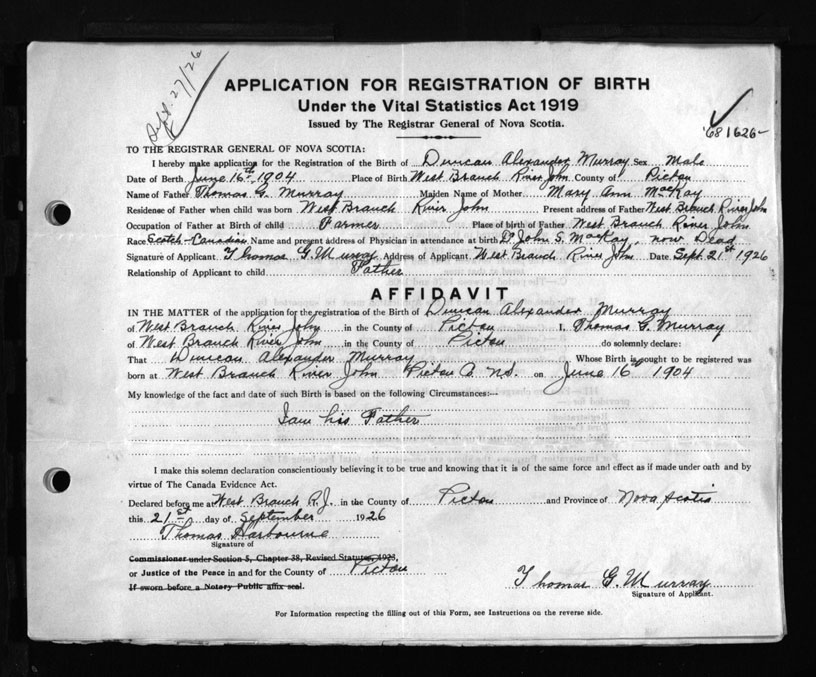 Sept. 27/26
APPLICATION FOR REGISTRATION OF BIRTH
Under the Vital Statistics Act 1919
Issued by The Registrar General of Nova Scotia.
681626-
TO THE REGISTRAR GENERAL OF NOVA SCOTIA:
I hereby make application for the Registration of the Birth of Duncan Alexander Murray Sex Male
Date of Berth June 16th 1904 Place of Birth West Branch River John County of Pictou
Name of Father Thomas G. Murray Maiden Name of Mother Mary Ann MacKay
Residense of Father when child was born West Branch River John Present address of Father West Branch River John
Occupation of Father at Birth of child Farmer Place of birth of Father West Branch River John
Race Scotch-Canadian Name and present address of Physician in attendance at birth Dr John S. MacKay, now Dead
Signature of Applicant Thomas G. Murray Address of Applicant West Branch River John Date Sept. 21st 1926
Relationship of Applicant to child Father
AFFIDAVIT
IN THE MATTER of the application for the registration of the Birth of Duncan Alexander Murray
of West Branch River John in the County of Pictou I, Thomas G. Murray
of West Branch River John in the County of Pictou do solemnly declare:
That Duncan Alexander Murray Whose Birth is sought to be registered was
born at West Branch River John Pictou Co. N.S. on June 16th 1904
My knowledge of the fact and date of such Birth is based on the following Circumstances:—
I am his Father
I make this solemn declaration conscientiously believing it to be true and knowing that it is of the same force and effect as if made under oath and by
virtue of The Canada Evidence Act.
Declared before me at West Branch R.J. in the County of Pictou and Province of Nova Scotia
this 21st day of September 1926
Thomas Harbourne
Signature of
Commissioner under Section 5, Chapter 38, Revised Statutes, 1923,
or Justice of the Peace in and for the County of Pictou
If sworn before a Notary Public affix seal.
Thomas G. Murray
Signature of Applicant.
For Information respecting the filling out of this Form, see Instructions on the reverse side.